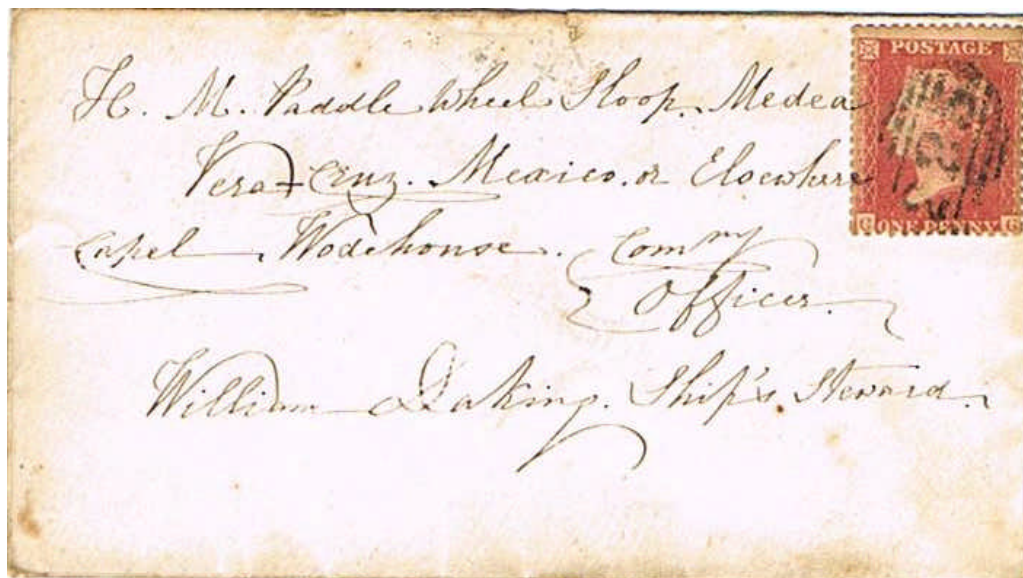 POSTAGE
H. M. Paddle Wheel Sloop. Medea
Vera-Cruz. Mexico. or Elsewhere
G ONE PENNY G
Capel Wodehouse. Comng
Officer.
William Daking. Ship's Steward.